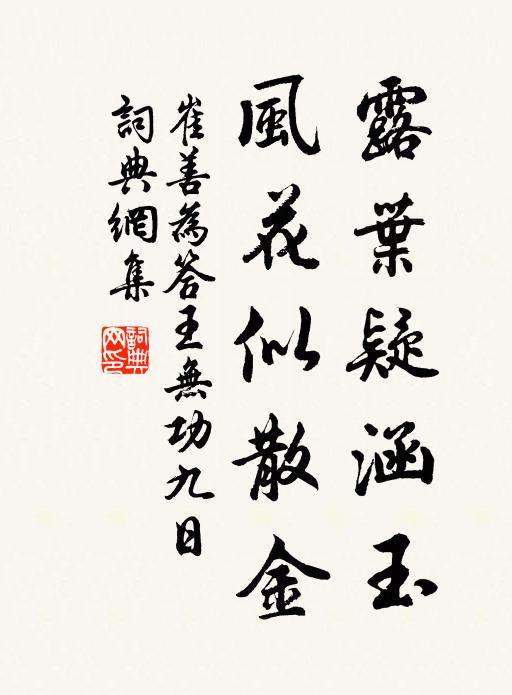 露葉疑涵玉
風花似散金
崔善為答王無功九日
詞典網集
詞典網印